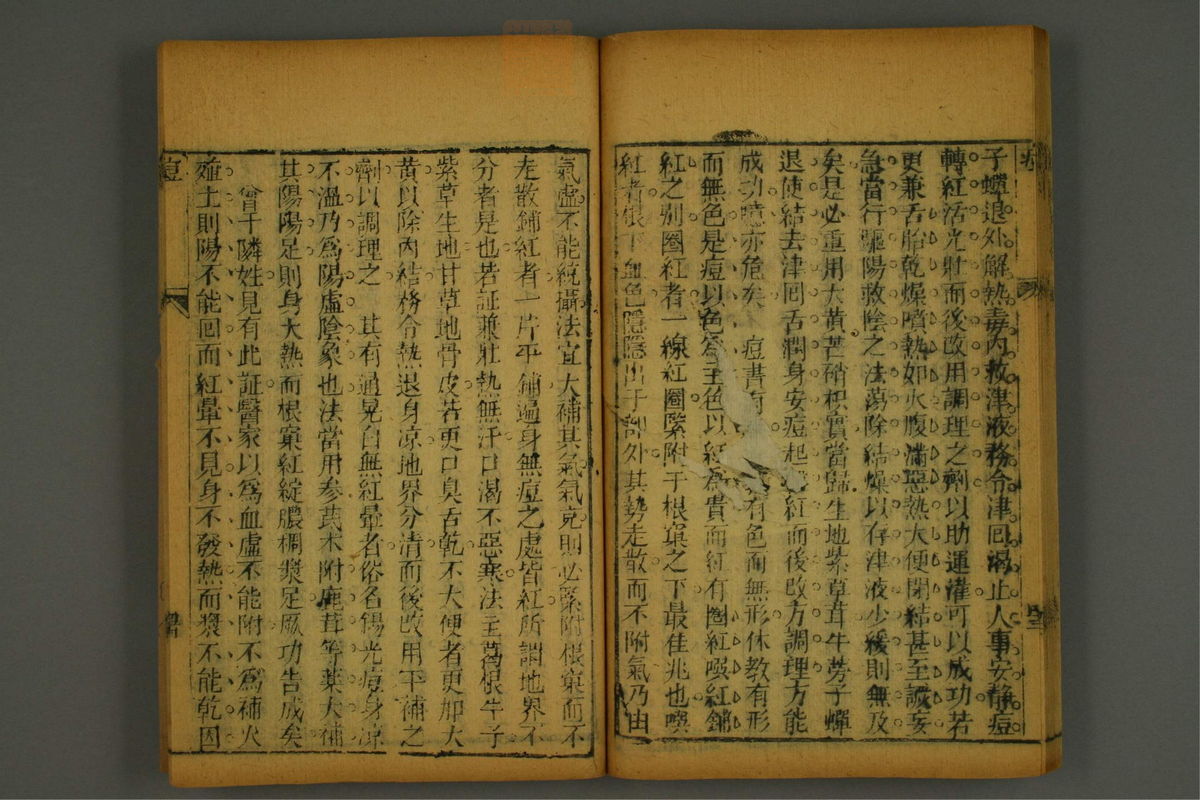 子蟬退外解熱毒內救津液務令津囘渴止人事安靜痘
轉紅活光壯而後改用調理之劑以助運灌可以成功若
更兼舌胎乾燥噴熱如火腹滿惡熱大便閉結甚至譫妄
急當行驅陽救陰之法蕩除結燥以存津液少緩則無及
矣是必重用大黃芒硝枳實當歸生地紫草茸牛蒡子蟬
退使結去津囘舌潤身安痘起紅而後改方調理方能
成功噫亦危矣 痘書有有色而無形休教有形
而無色是痘以色爲主色以紅爲貴而紅有圈紅噀紅鋪
紅之別圈紅者一線紅圈緊附于根窠之下最佳兆也噀
紅者根下血色隱隱出于部外其勢走散而不附氣乃由
氣虛不能統攝法宜大補其氣氣充則必緊附根窠而不
走散鋪紅者一片平鋪遍身無痘之處皆紅所謂地界不
分者是也若証兼壯熱無汗口渴不惡寒法主葛根牛子
紫草生地甘草地骨皮若更口臭舌乾不大便者更加大
黃以除內結務令熱退身凉地界分清而後改用平補之
劑以調理之 其有通晃白無紅暈者俗名錫光痘身凉
不溫乃爲陽虛陰象也法當用參芪朮附鹿茸等藥大補
其陽陽足則身大熱而根窠紅綻膿稠漿足厥功告成矣
曾于隣姓見有此証醫家以爲血虛不能附不爲補火
殖土則陽不能囘而紅暈不見身不發熱而漿不能乾因